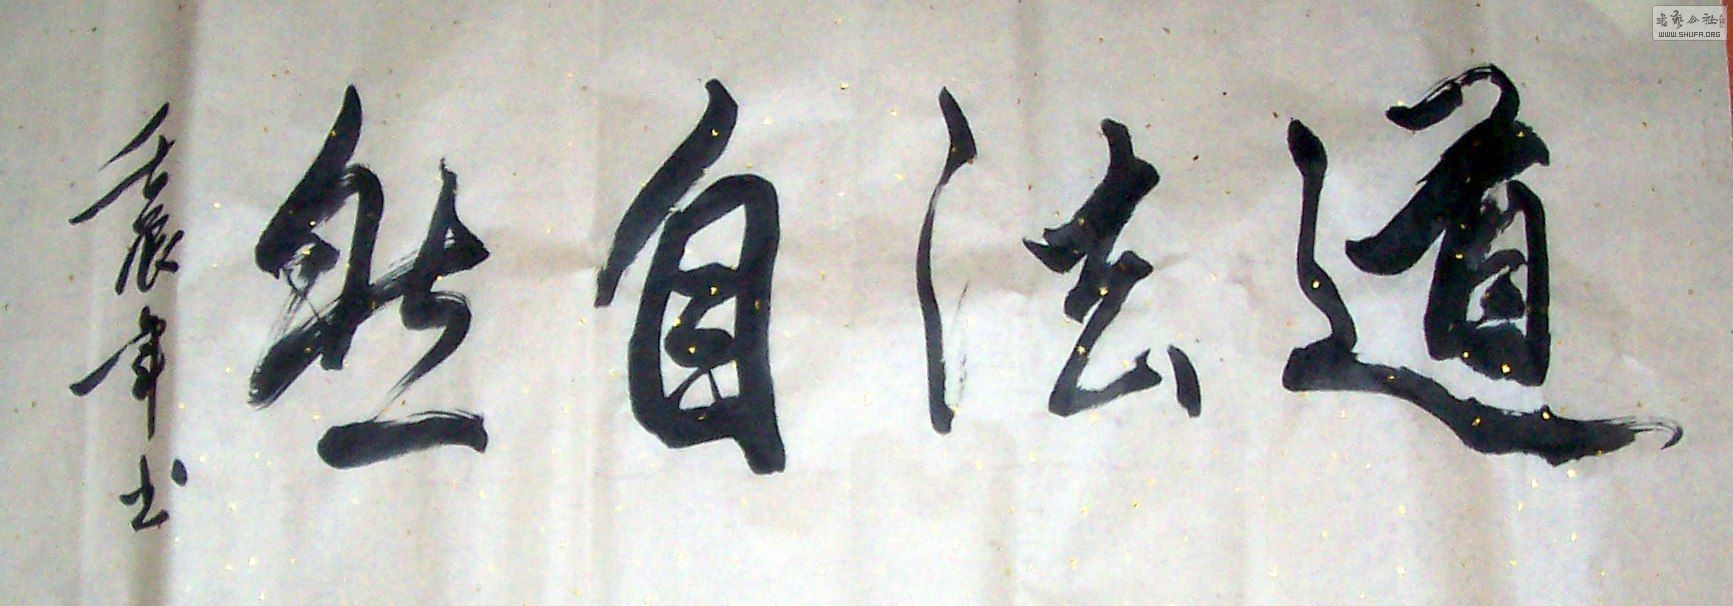 道法自然
壬辰年书
書艺公社
WWW.SHUFA.ORG